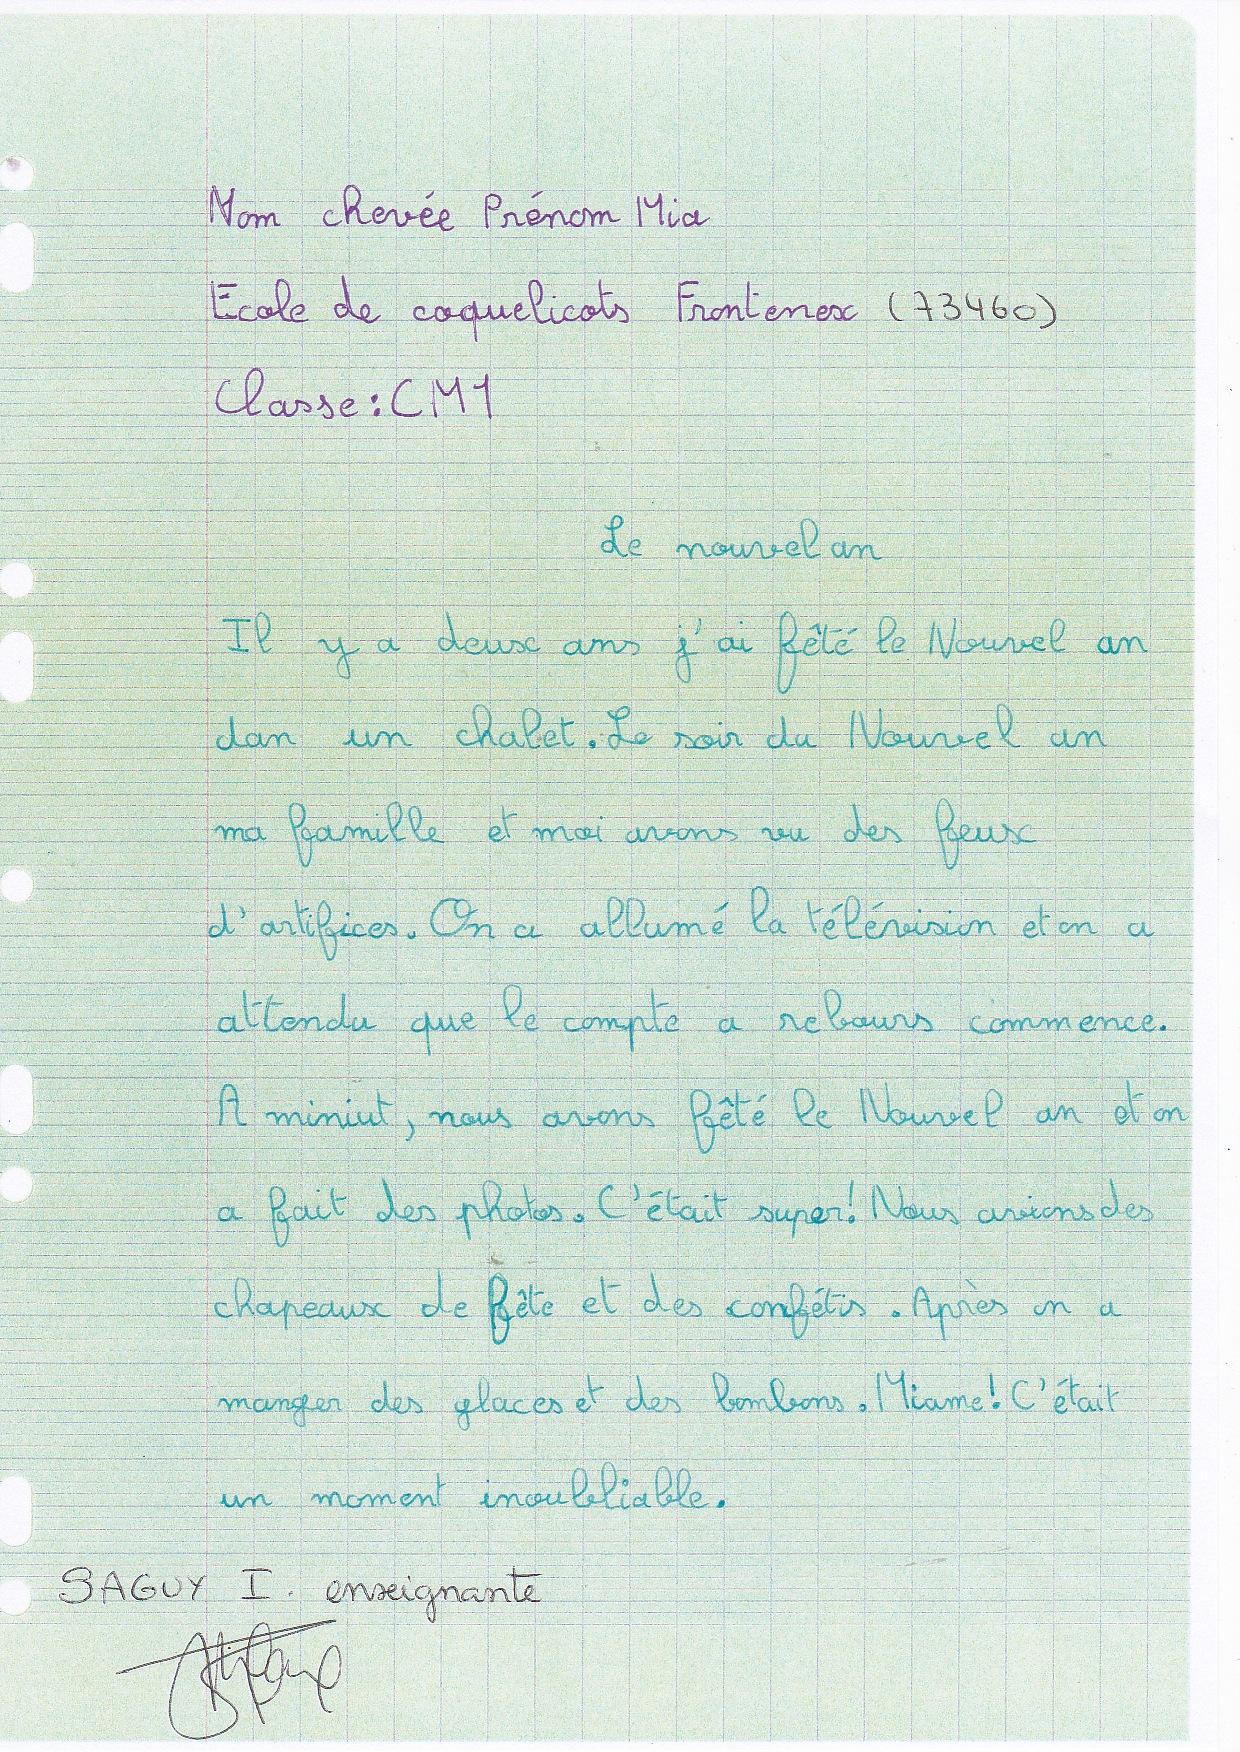 Nom chevée Prénom Mia
Ecole de coquelicots Frontenex (73460)
Classe : CM1
Le nouvel an
Il y a deux ans j'ai fêté le Nouvel an
dan un chalet. Le soir du Nouvel an
ma famille et moi avons vu des feux
d'artifices. On a allumé la télévision et on a
attendu que le compte a rebours commence.
A miniut, nous avons fêté le Nouvel an et on
a fait des photos. C'était super! Nous avions des
chapeaux de fête et des confétis. Après on a
manger des glaces et des bonbons. Miame! C'était
un moment inoubliable.
SAGUY I. enseignante